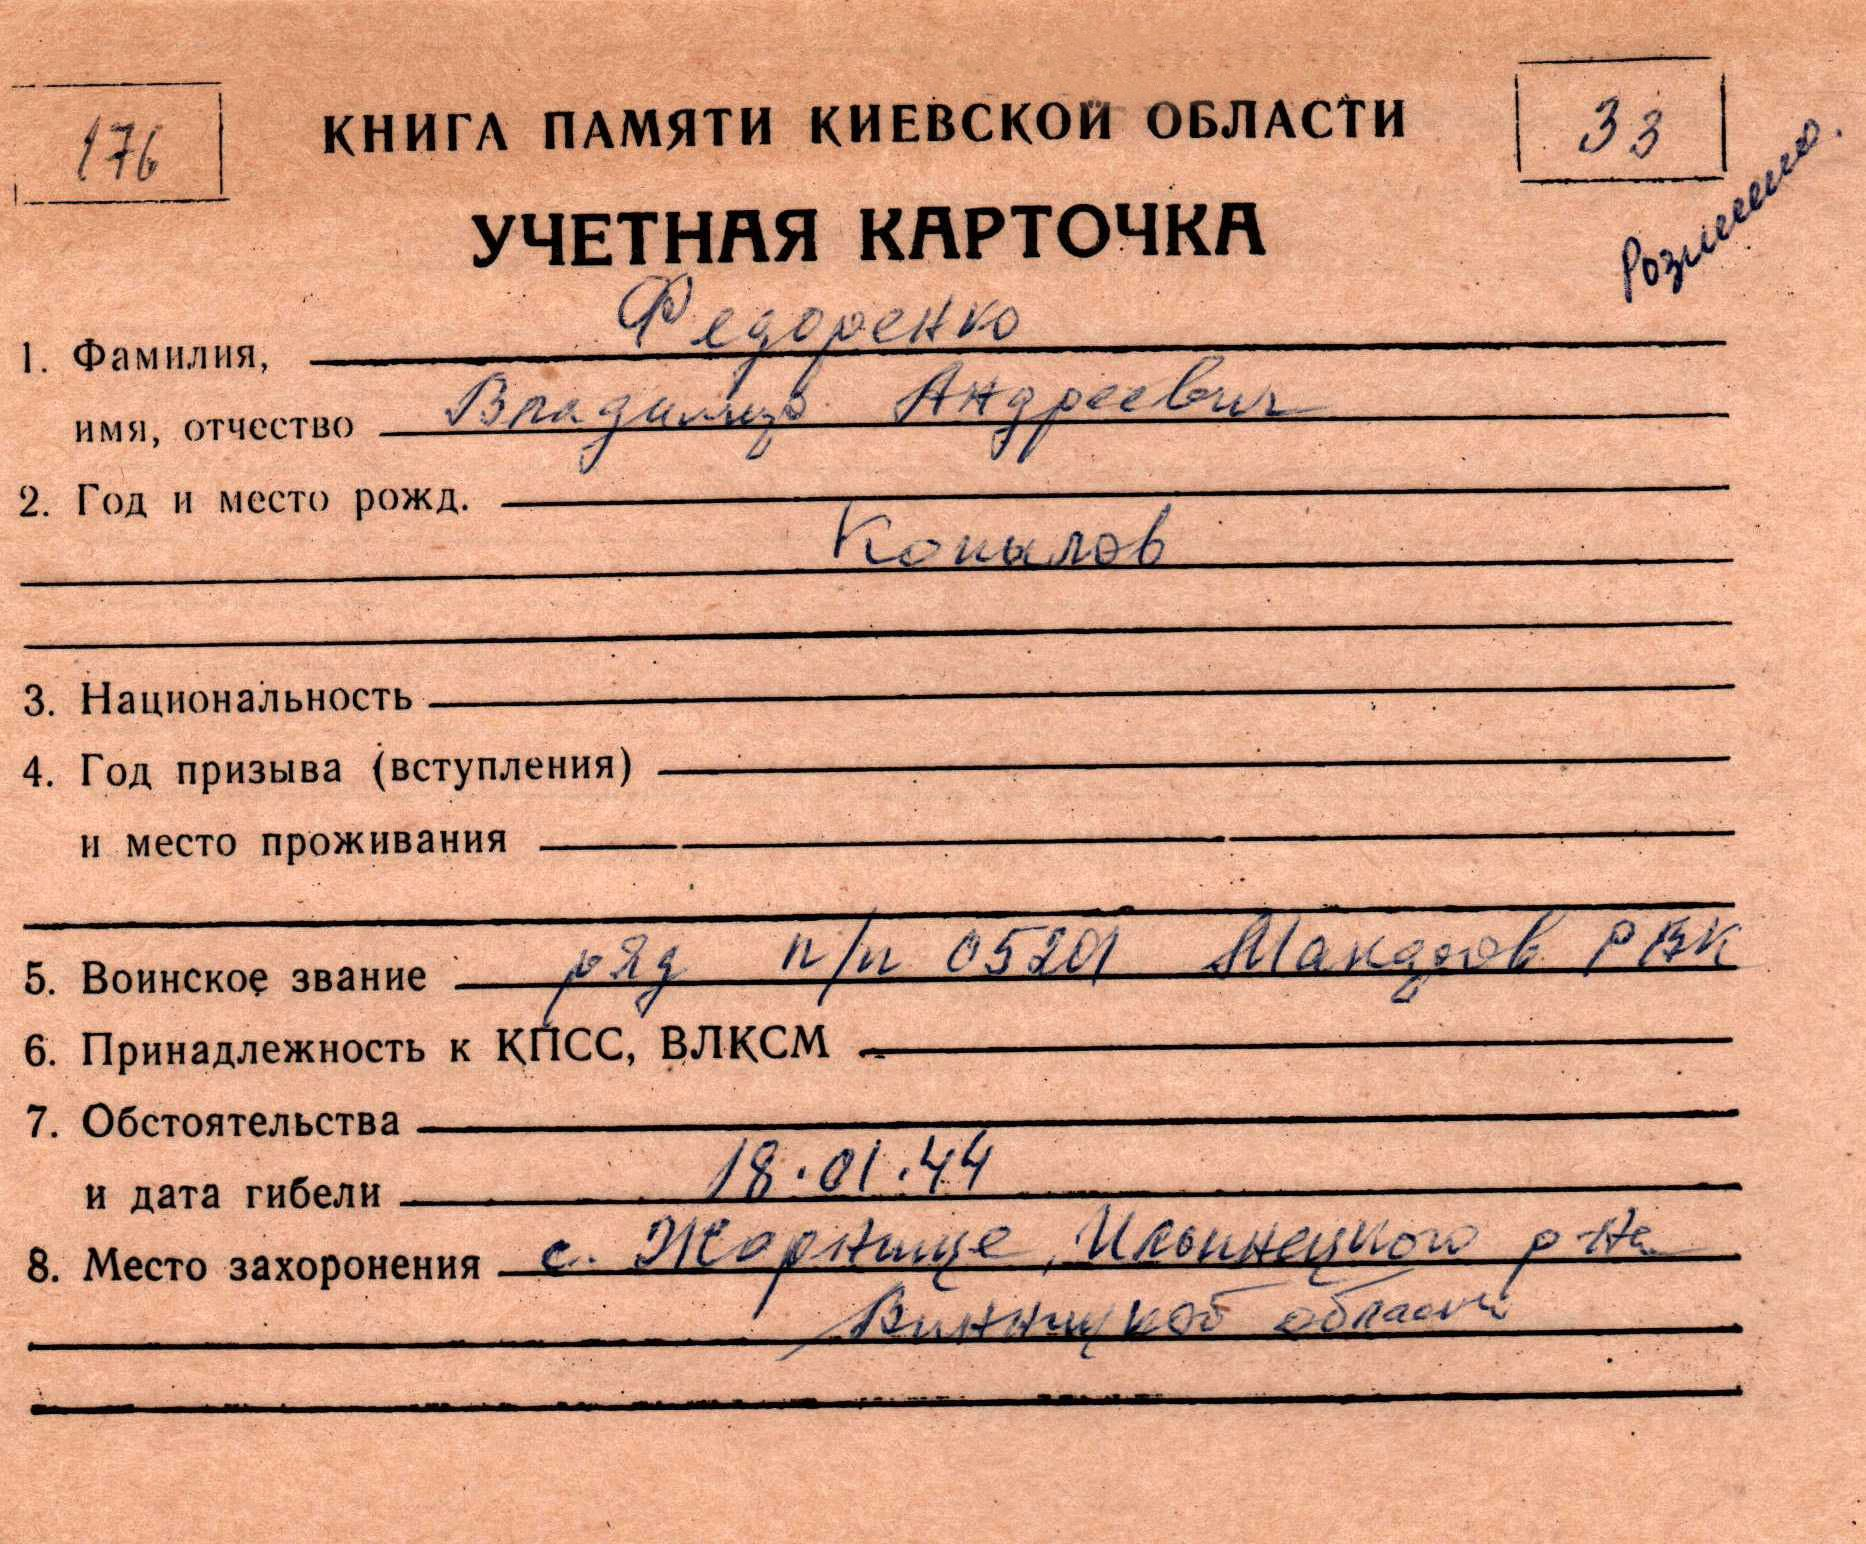 176
КНИГА ПАМЯТИ КИЕВСКОЙ ОБЛАСТИ
33
Розшено.
УЧЕТНАЯ КАРТОЧКА
1. Фамилия, Федоренко
имя, отчество Владимир Андреевич
2. Год и место рожд.
Копылов
3. Национальность
4. Год призыва (вступления)
и место проживания
5. Воинское звание ряд п/п 05201 Макаров РВК
6. Принадлежность к КПСС, ВЛКСМ
7. Обстоятельства
и дата гибели 18.01.44
8. Место захоронения с. Жорнище, Ильинецкого р-на
Винницкой области